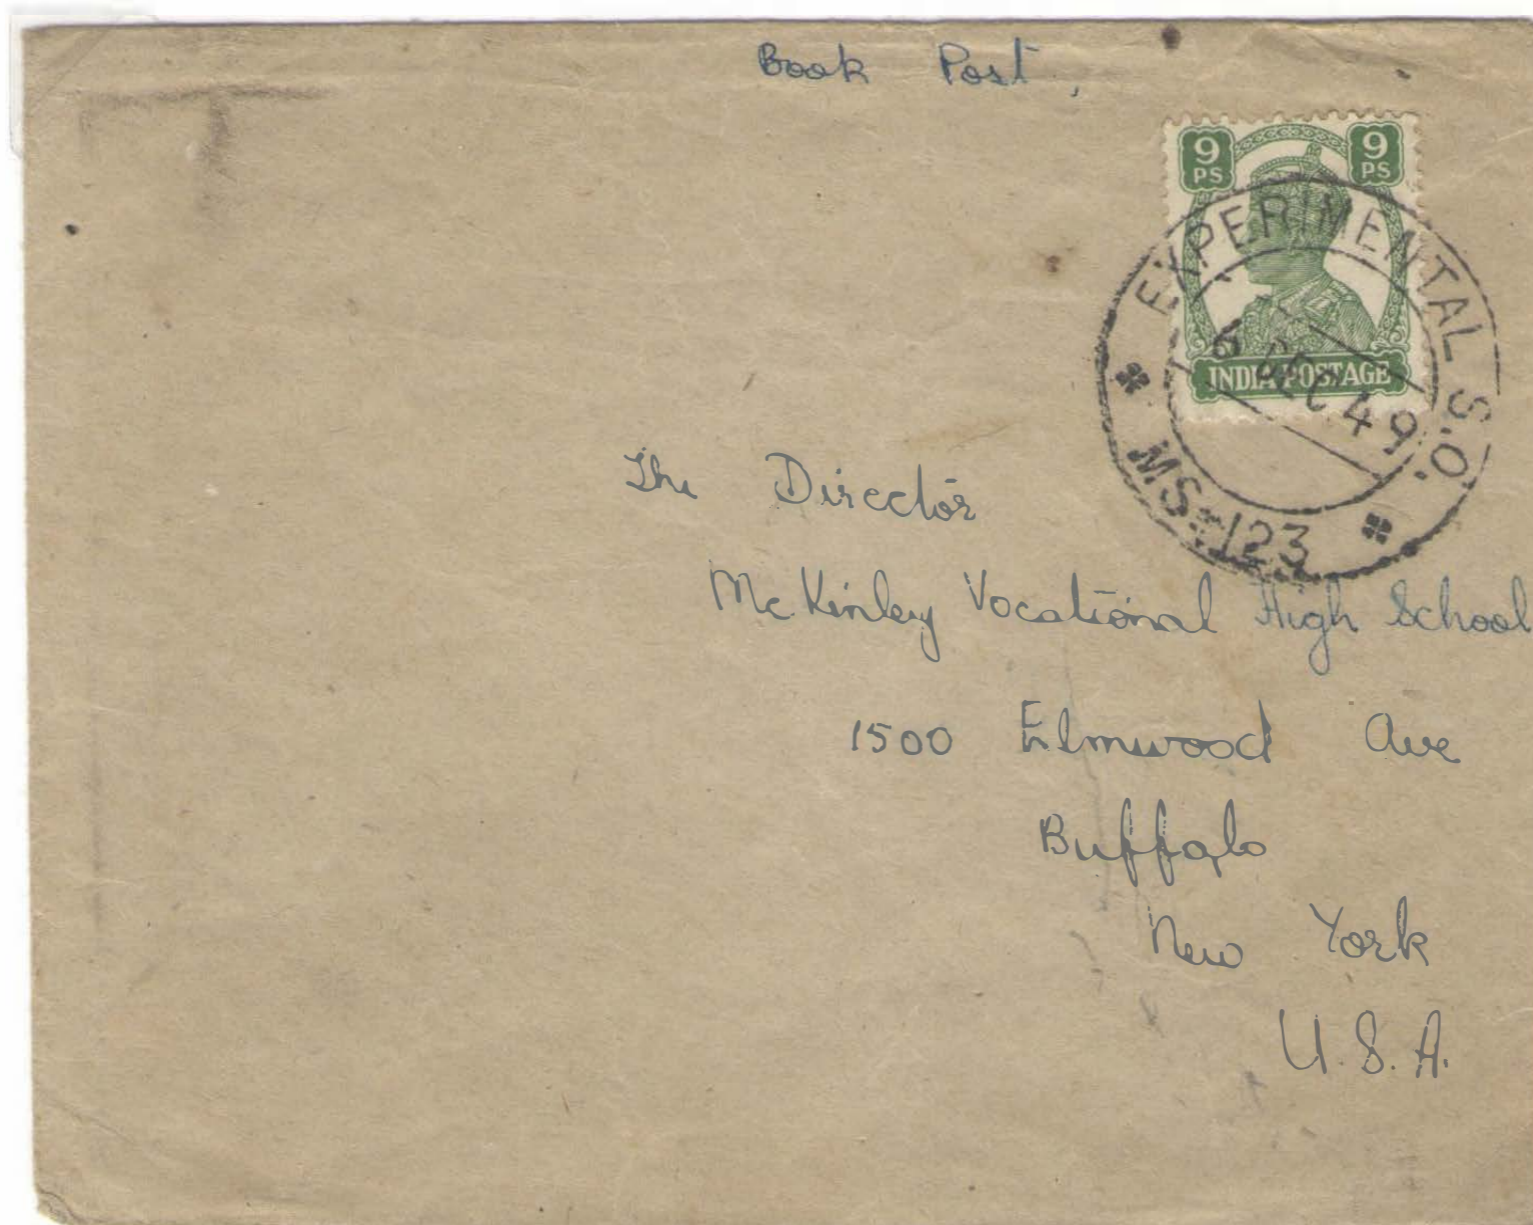 Book Post,
9 PS 9 PS
INDIA POSTAGE
EXPERIMENTAL S.O.
6 DEC 49
MS-123
T
The Director
McKinley Vocational High School
1500 Elmwood Ave
Buffalo
New York
U.S.A.